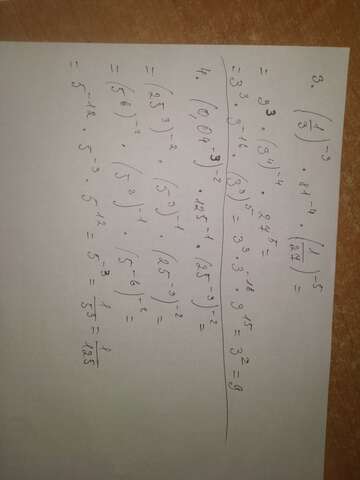 3. (1/3)^-3 · 81^-4 · (1/27)^-5 =
= 3^3 · (3^4)^-4 · 27^5 =
= 3^3 · 3^-16 · (3^3)^5 = 3^3 · 3^-16 · 3^15 = 3^2 = 9
4. (0,04^-3)^-2 · 125^-1 · (25^-3)^-2 =
= (25^3)^-2 · (5^3)^-1 · (25^-3)^-2 =
= (5^6)^-2 · (5^3)^-1 · (5^-6)^-2 =
= 5^-12 · 5^-3 · 5^12 = 5^-3 = 1/5^3 = 1/125